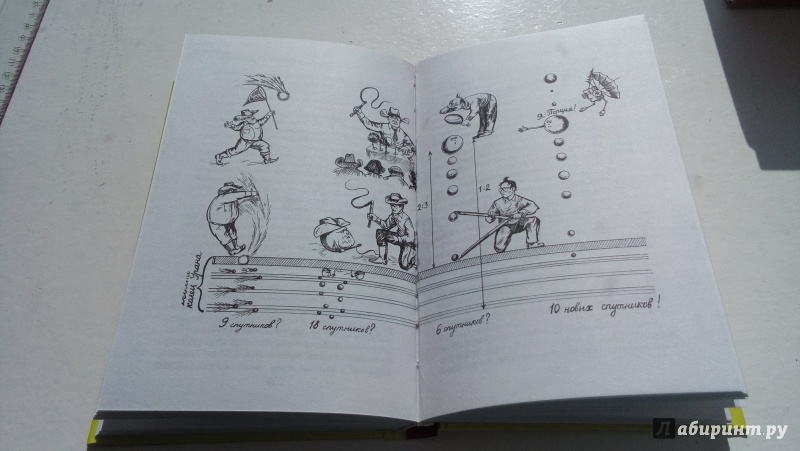 Я Порция!
2:3
1:2
колец Урана
9 спутников?
18 спутников?
6 спутников?
10 новых спутников!
Лабиринт.ру